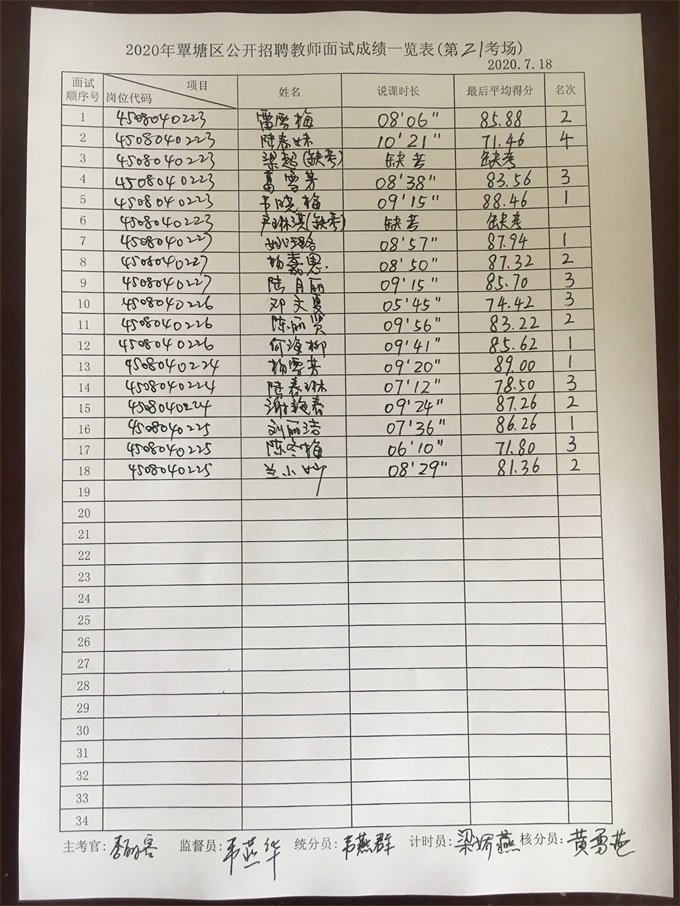 2020年覃塘区公开招聘教师面试成绩一览表(第21考场)
2020.7.18
面试顺序号 项目 岗位代码 姓名 说课时长 最后平均得分 名次
1 4508040223 雷雪梅 08'06" 85.88 2
2 4508040223 陆春妹 10'21" 71.46 4
3 4508040223 梁超(缺考) 缺考 缺考
4 4508040223 雪芳 08'38" 83.56 3
5 4508040223 韦晓梅 09'15" 88.46 1
6 4508040223 (缺考) 缺考 缺考
7 4508040227 08'57" 87.94 1
8 4508040227 杨嘉恩 08'50" 87.32 2
9 4508040227 陆月丽 09'15" 85.70 3
10 4508040226 邓文夏 05'45" 74.42 3
11 4508040226 陈丽贤 09'56" 83.22 2
12 4508040226 何海柳 09'41" 85.62 1
13 4508040224 杨雪芳 09'20" 89.00 1
14 4508040224 陆春琳 07'12" 78.50 3
15 4508040224 谢艳春 09'24" 87.26 2
16 4508040225 刘丽洁 07'36" 86.26 1
17 4508040225 陈冬梅 06'10" 71.80 3
18 4508040225 兰小妙 08'29" 81.36 2
19
20
21
22
23
24
25
26
27
28
29
30
31
32
33
34
主考官: 监督员:韦燕华 统分员:韦燕群 计时员:梁娇燕 核分员:黄勇